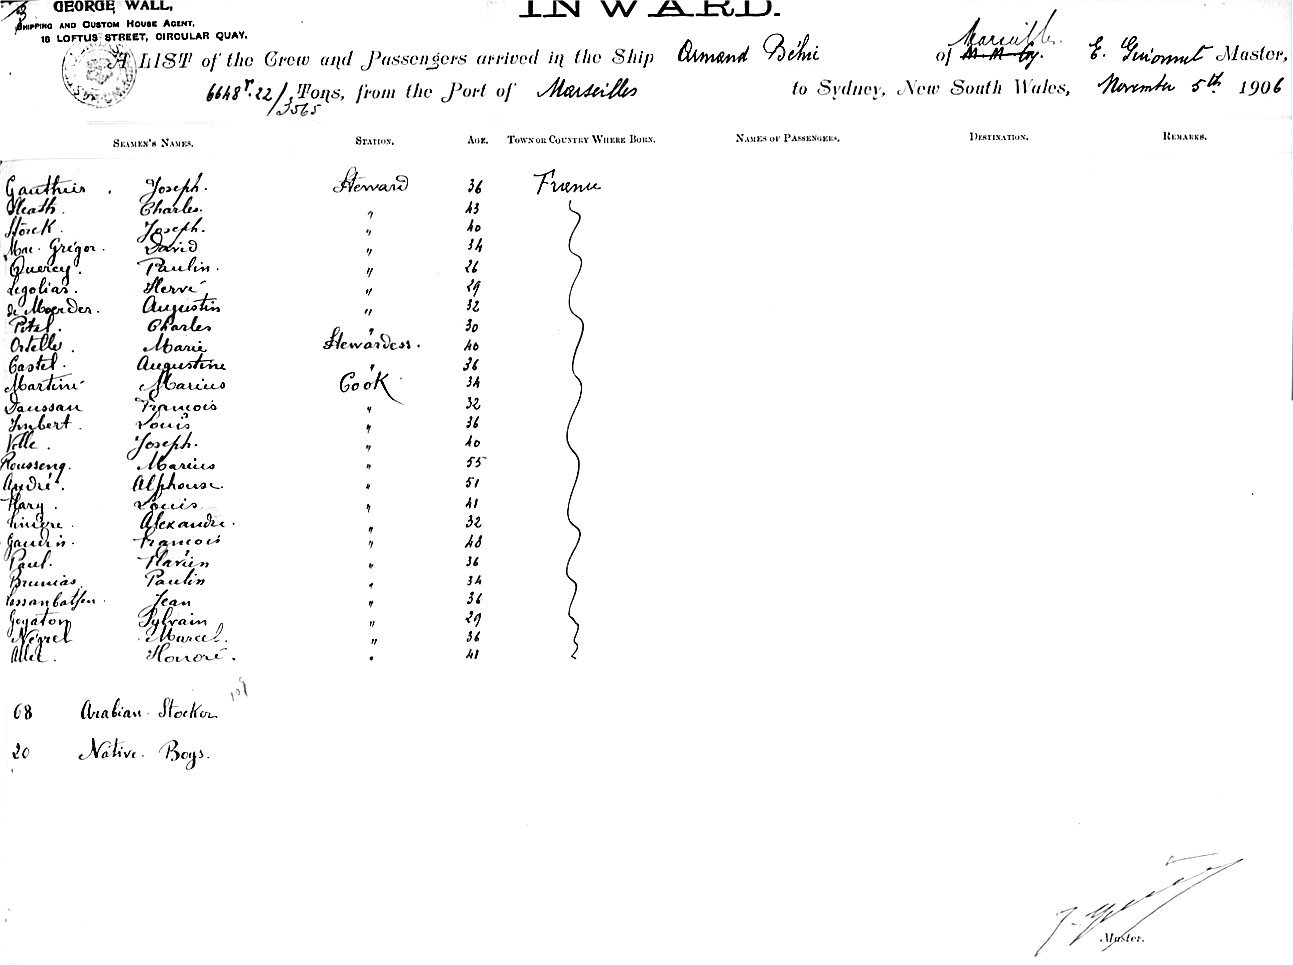 GEORGE WALL,
SHIPPING AND CUSTOM HOUSE AGENT,
18 LOFTUS STREET, CIRCULAR QUAY.
INWARD.
A LIST of the Crew and Passengers arrived in the Ship Armand Béhic of Marseilles E. Master,
6648 T. 22/ 3565 Tons, from the Port of Marseilles to Sydney, New South Wales, November 5th 1906
SEAMEN'S NAMES. STATION. AGE. TOWN OR COUNTRY WHERE BORN. NAMES OF PASSENGERS. DESTINATION. REMARKS.
Gauthier . Joseph. Steward 36 France
Heath. Charles. " 43
Hörck. Joseph. " 40
Mac. Grégor. David " 34
Quercy. Paulin. " 26
Legolias. Hervé " 29
de Moerder. Augustin " 32
Petel. Charles " 30
Ortelle. Marie Stewardess. 40
Castel. Augustine " 36
Martini Marius Cook 34
Daussan François " 32
Imbert. Louis " 36
Ville. Joseph. " 40
Rousseng. Marius " 55
André. Alphonse. " 51
Hary. Louis " 41
Alexandre. " 32
Gaudin. François " 48
Paul. Flavien " 36
Brumias. Paulin " 34
Jean " 36
Goyaton Sylvain " 29
Négrel Marcel. " 36
Honoré. " 41
109
68 Arabian. Stocker
20 Native. Boys.
Master.